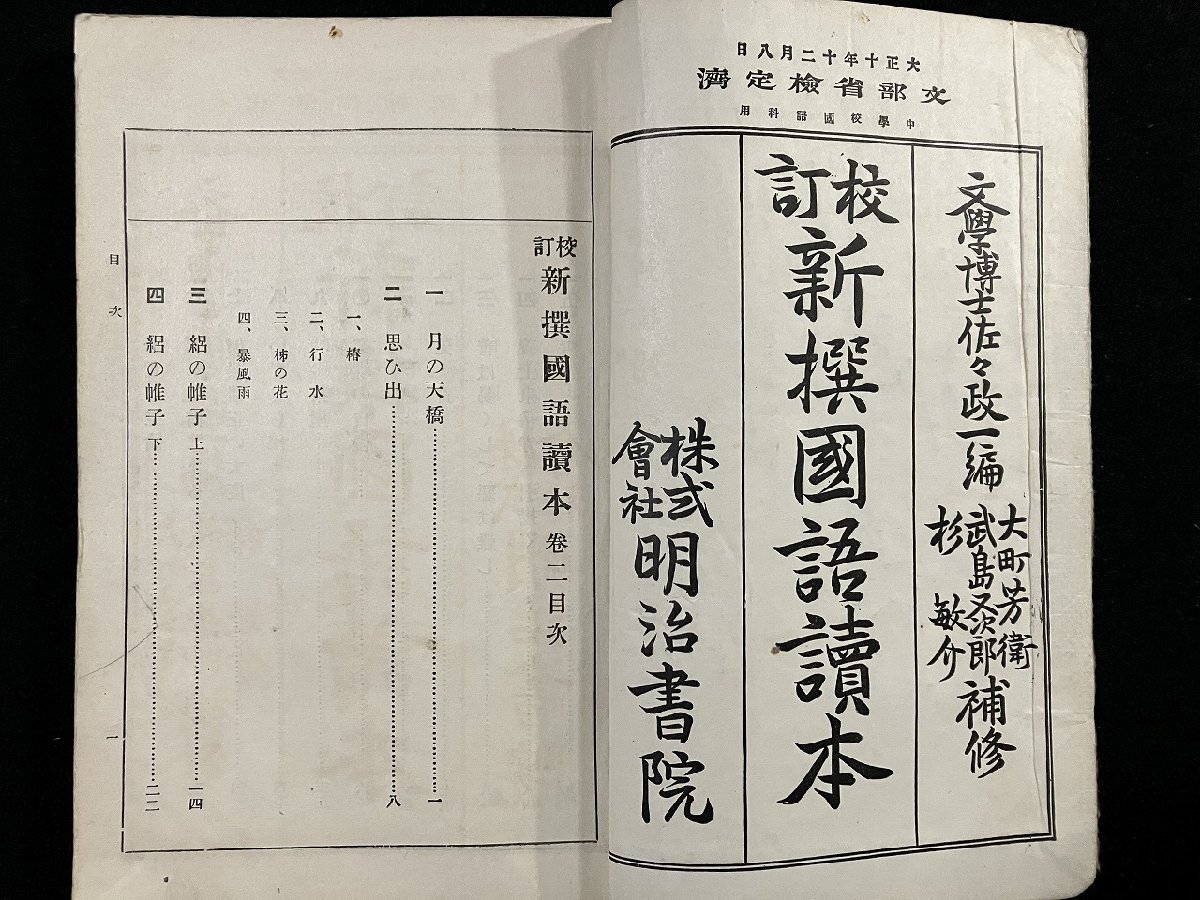 大正十年十二月八日
文部省檢定濟
中學校國語科用
文學博士佐々政一編
大町芳衛
武島又次郎
杉敏介
補修
校訂
新撰國語讀本
株式會社
明治書院
校訂
新撰國語讀本 卷二目次
一 月の天橋……一
二 思ひ出……八
一、椿
二、行水
三、柿の花
四、暴風雨
三 絽の帷子 上……一四
四 絽の帷子 下……二二
目次
一